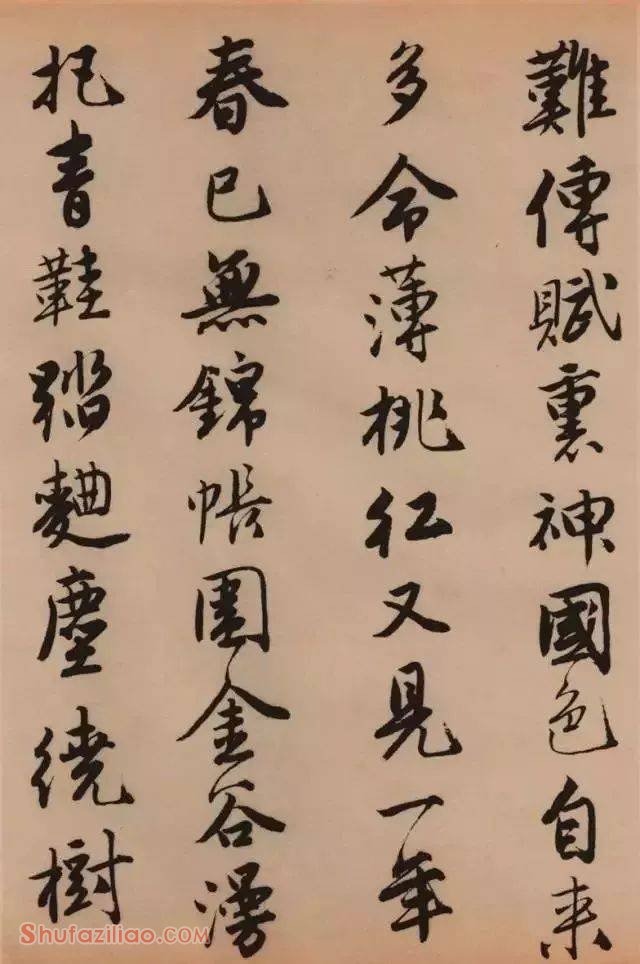 難傳賦裏神國色自来
多命薄桃紅又見一年
春已無錦帳圍金谷漫
把青鞋踏麯塵繞樹
Shufaziliao.COM